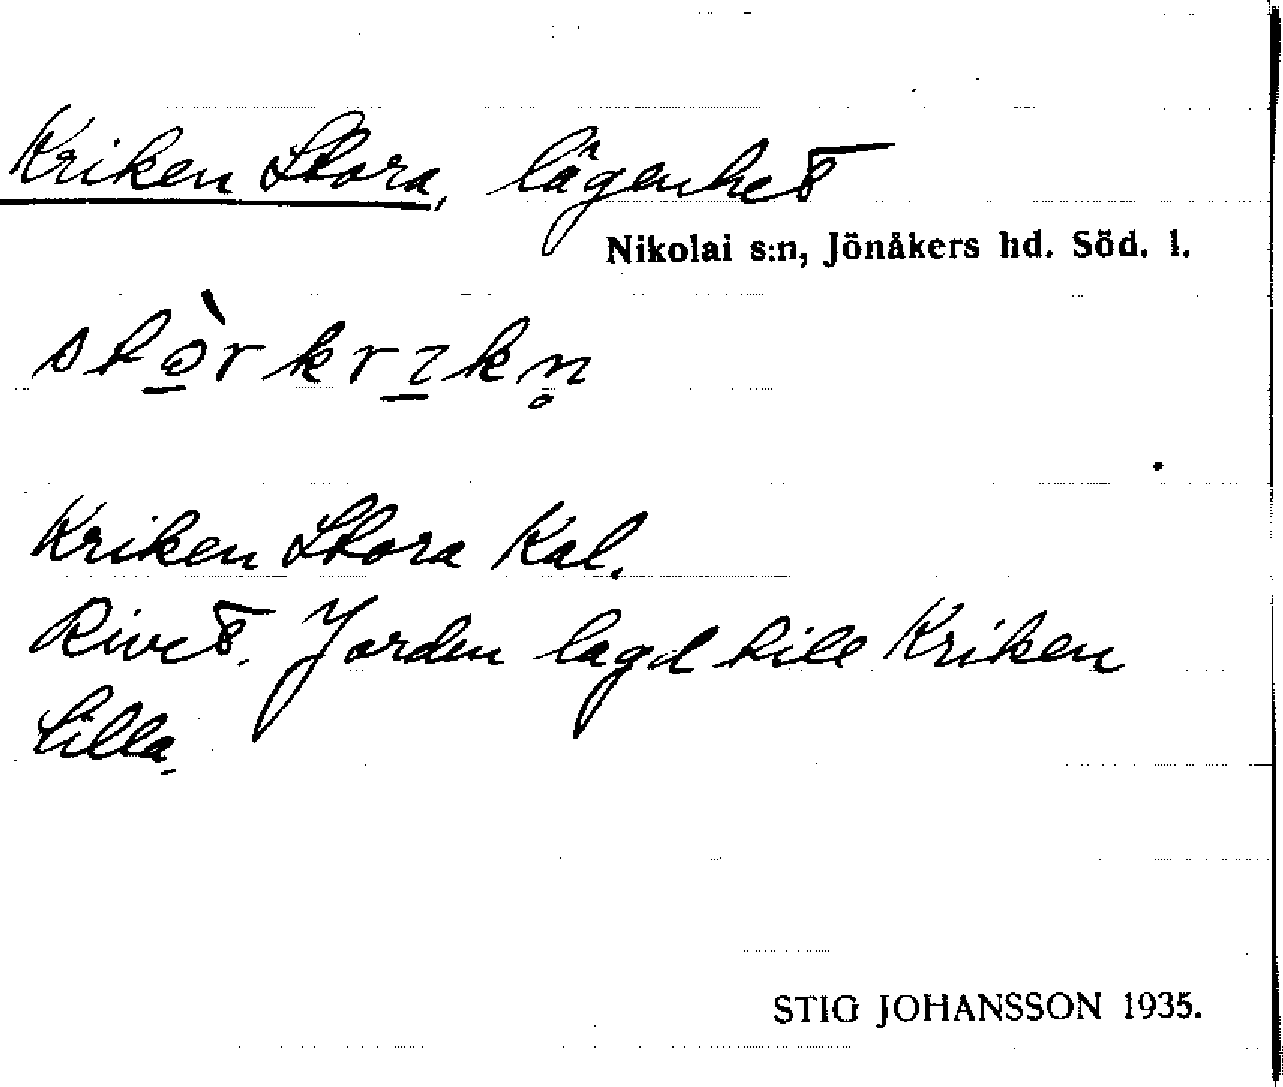 Kriken Stora, lägenhet
Nikolai s:n, Jönåkers hd. Söd. l.
stò̱r krɪ̱kn̥
Kriken Stora Kal.
Rivet. Jorden lagd till Kriken
Lilla.
STIG JOHANSSON 1935.